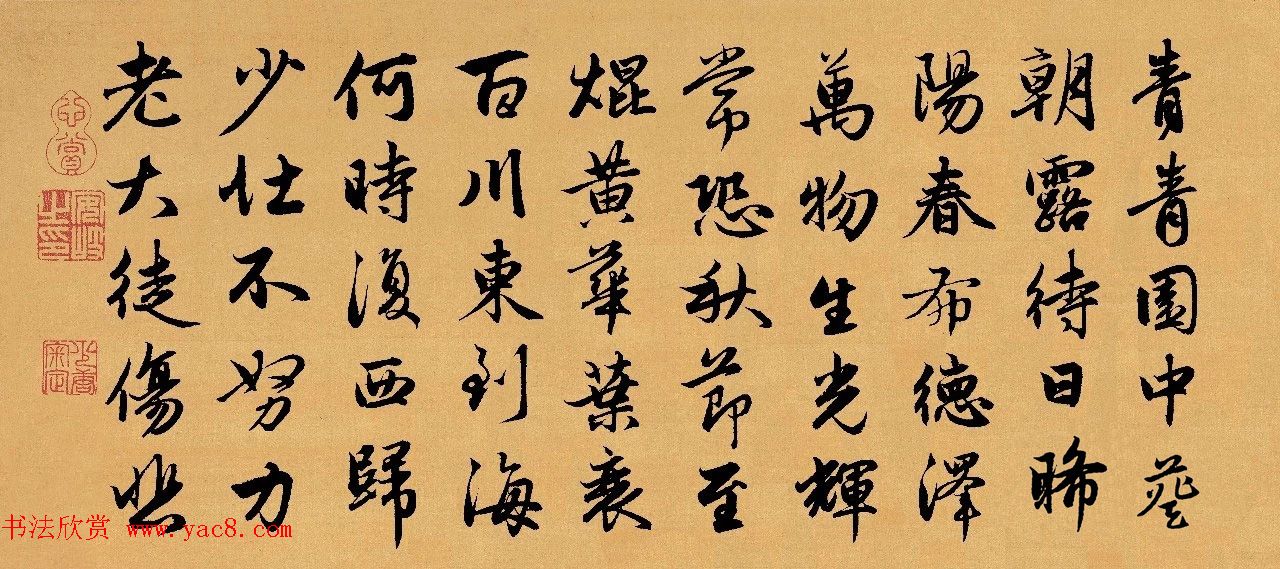 青青園中葵
朝露待日晞
陽春布德澤
萬物生光輝
常恐秋節至
焜黄華葉衰
百川東到海
何時復西歸
少壮不努力
老大徒傷悲
书法欣赏 www.yac8.com